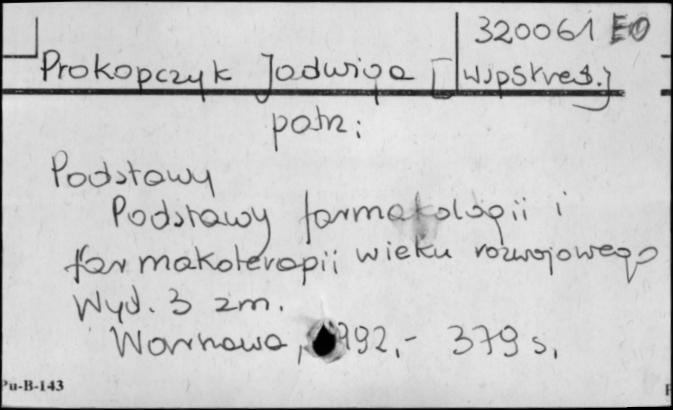 320061 EO
Prokopczyk Jadwiga [wspstreś.]
patrz:
Podstawy
Podstawy farmakologii i
farmakoterapii wieku rozwojowego
Wyd. 3 zm.
Warszawa, 1992,- 379 s,
Pu-B-143